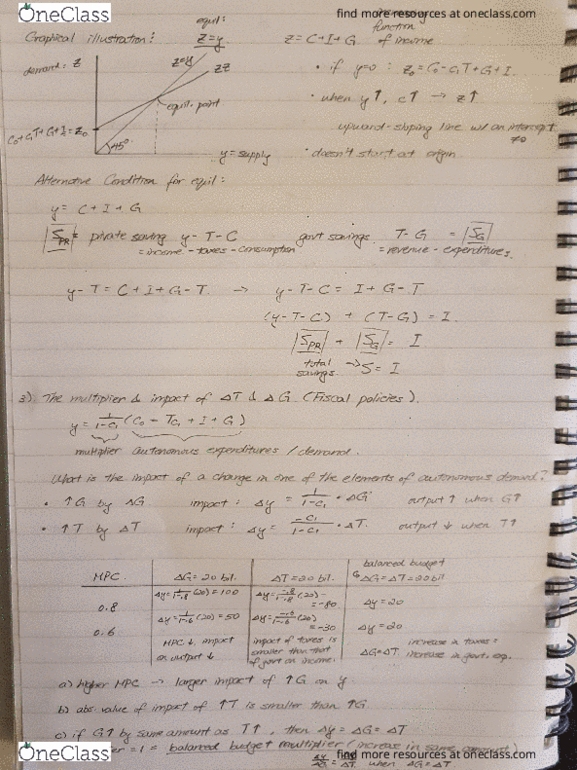 OneClass
find more resources at oneclass.com
equil:
function
Graphical illustration:
Z=y
Z = C+I+G
of income
demand: Z
Z=y
ZZ
• if y=0 : Z₀ = C₀-C₁T+G+I
equil. point
• when y↑, c↑ → z↑
C₀+C₁T+G+I=Z₀
upward-sloping line w/ an intercept
≠0
45°
y = supply
• doesn't start at origin
Alternative Condition for equil:
y = C+I+G
S_PR = private saving y-T-C
govt savings T-G = S_G
= income - taxes - consumption
= revenue - expenditures.
y-T = C+I+G-T → y-T-C = I+G-T
(y-T-C) + (T-G) = I
S_PR + S_G = I
total savings → S = I
3). The multiplier & impact of ΔT & ΔG (Fiscal policies).
y = 1/1-C₁ (C₀ - TC₁ + I + G)
multiplier autonomous expenditures / demand.
What is the impact of a change in one of the elements of autonomous demand?
• ↑G by ΔG impact: Δy = 1/1-C₁ · ΔG output ↑ when G↑
• ↑T by ΔT impact: Δy = -C₁/1-C₁ · ΔT. output ↓ when T↑
balanced budget
MPC
ΔG = 20 bil.
ΔT = 20 bil.
ΔG = ΔT = 20 bil
0.8
Δy = 1/1-.8 (20) = 100
Δy = -.8/1-.8 (20) = -80
Δy = 20
0.6
Δy = 1/1-.6 (20) = 50
Δy = -.6/1-.6 (20) = -30
Δy = 20
MPC ↓, impact on output ↓
impact of taxes is smaller than that of govt on income.
ΔG=ΔT
increase in taxes = increase in govt. exp.
a) higher MPC → larger impact of ↑G on y
b) abs value of impact of ↑T is smaller than ↑G.
c) if G↑ by same amount as T↑, then Δy = ΔG = ΔT
= 1 = balanced budget multiplier (increase in same amount)
when ΔG = ΔT
OneClass
find more resources at oneclass.com